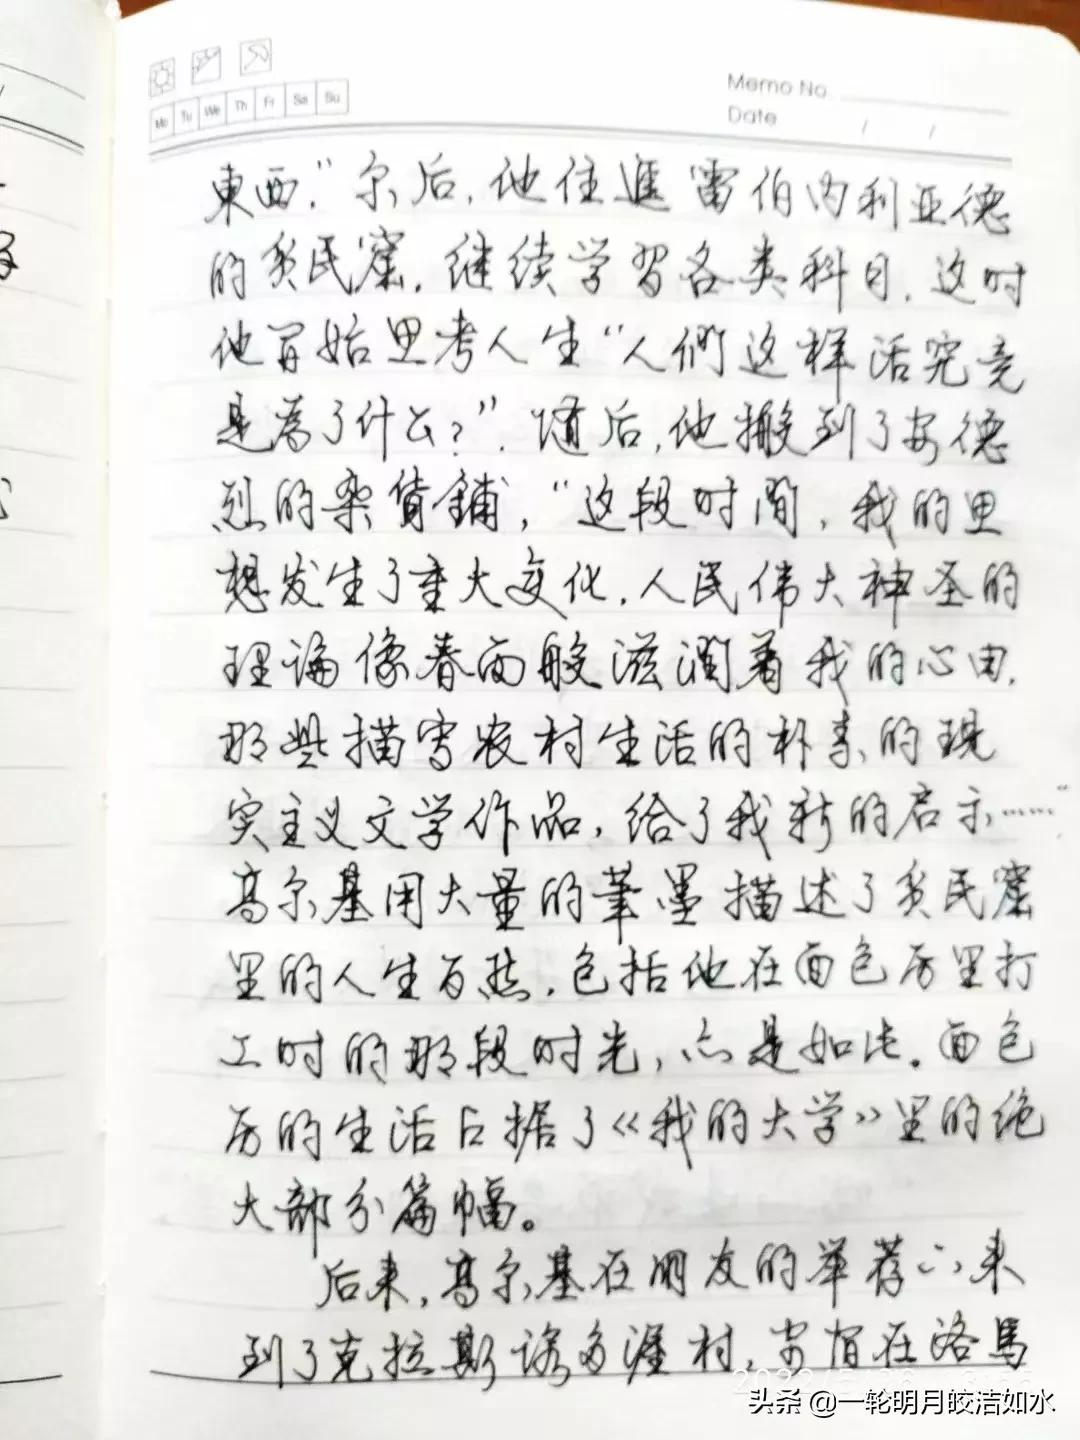 Memo No.
Mo Tu We Th Fr Sa Su
Date / /
東西." 尔后,他住進雷伯内利亚德
的贫民窟,继续学習各类科目,这时
他开始思考人生"人們这样活究竟
是為了什么?".随后,他搬到了安德
烈的杂貨鋪,"这段时間,我的思
想发生了重大变化,人民伟大神圣的
理论像春雨般滋潤着我的心田,
那些描写农村生活的朴素的现
实主义文学作品,给了我新的启示……"
高尔基用大量的筆墨描述了贫民窟
里的人生百态,包括他在面包房里打
工时的那段时光,亦是如此。面包
房的生活占据了《我的大学》里的绝
大部分篇幅。
后来,高尔基在朋友的举荐下,来
到了克拉斯诺多涯村,安宿在洛馬
头条 @一轮明月皎洁如水